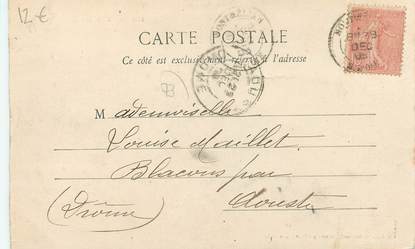 12 €
CARTE POSTALE
Ce côté est exclusivement réservé à l'adresse
Mademoiselle
Louise Maillet
Blacons par
Aouste
(Drôme)